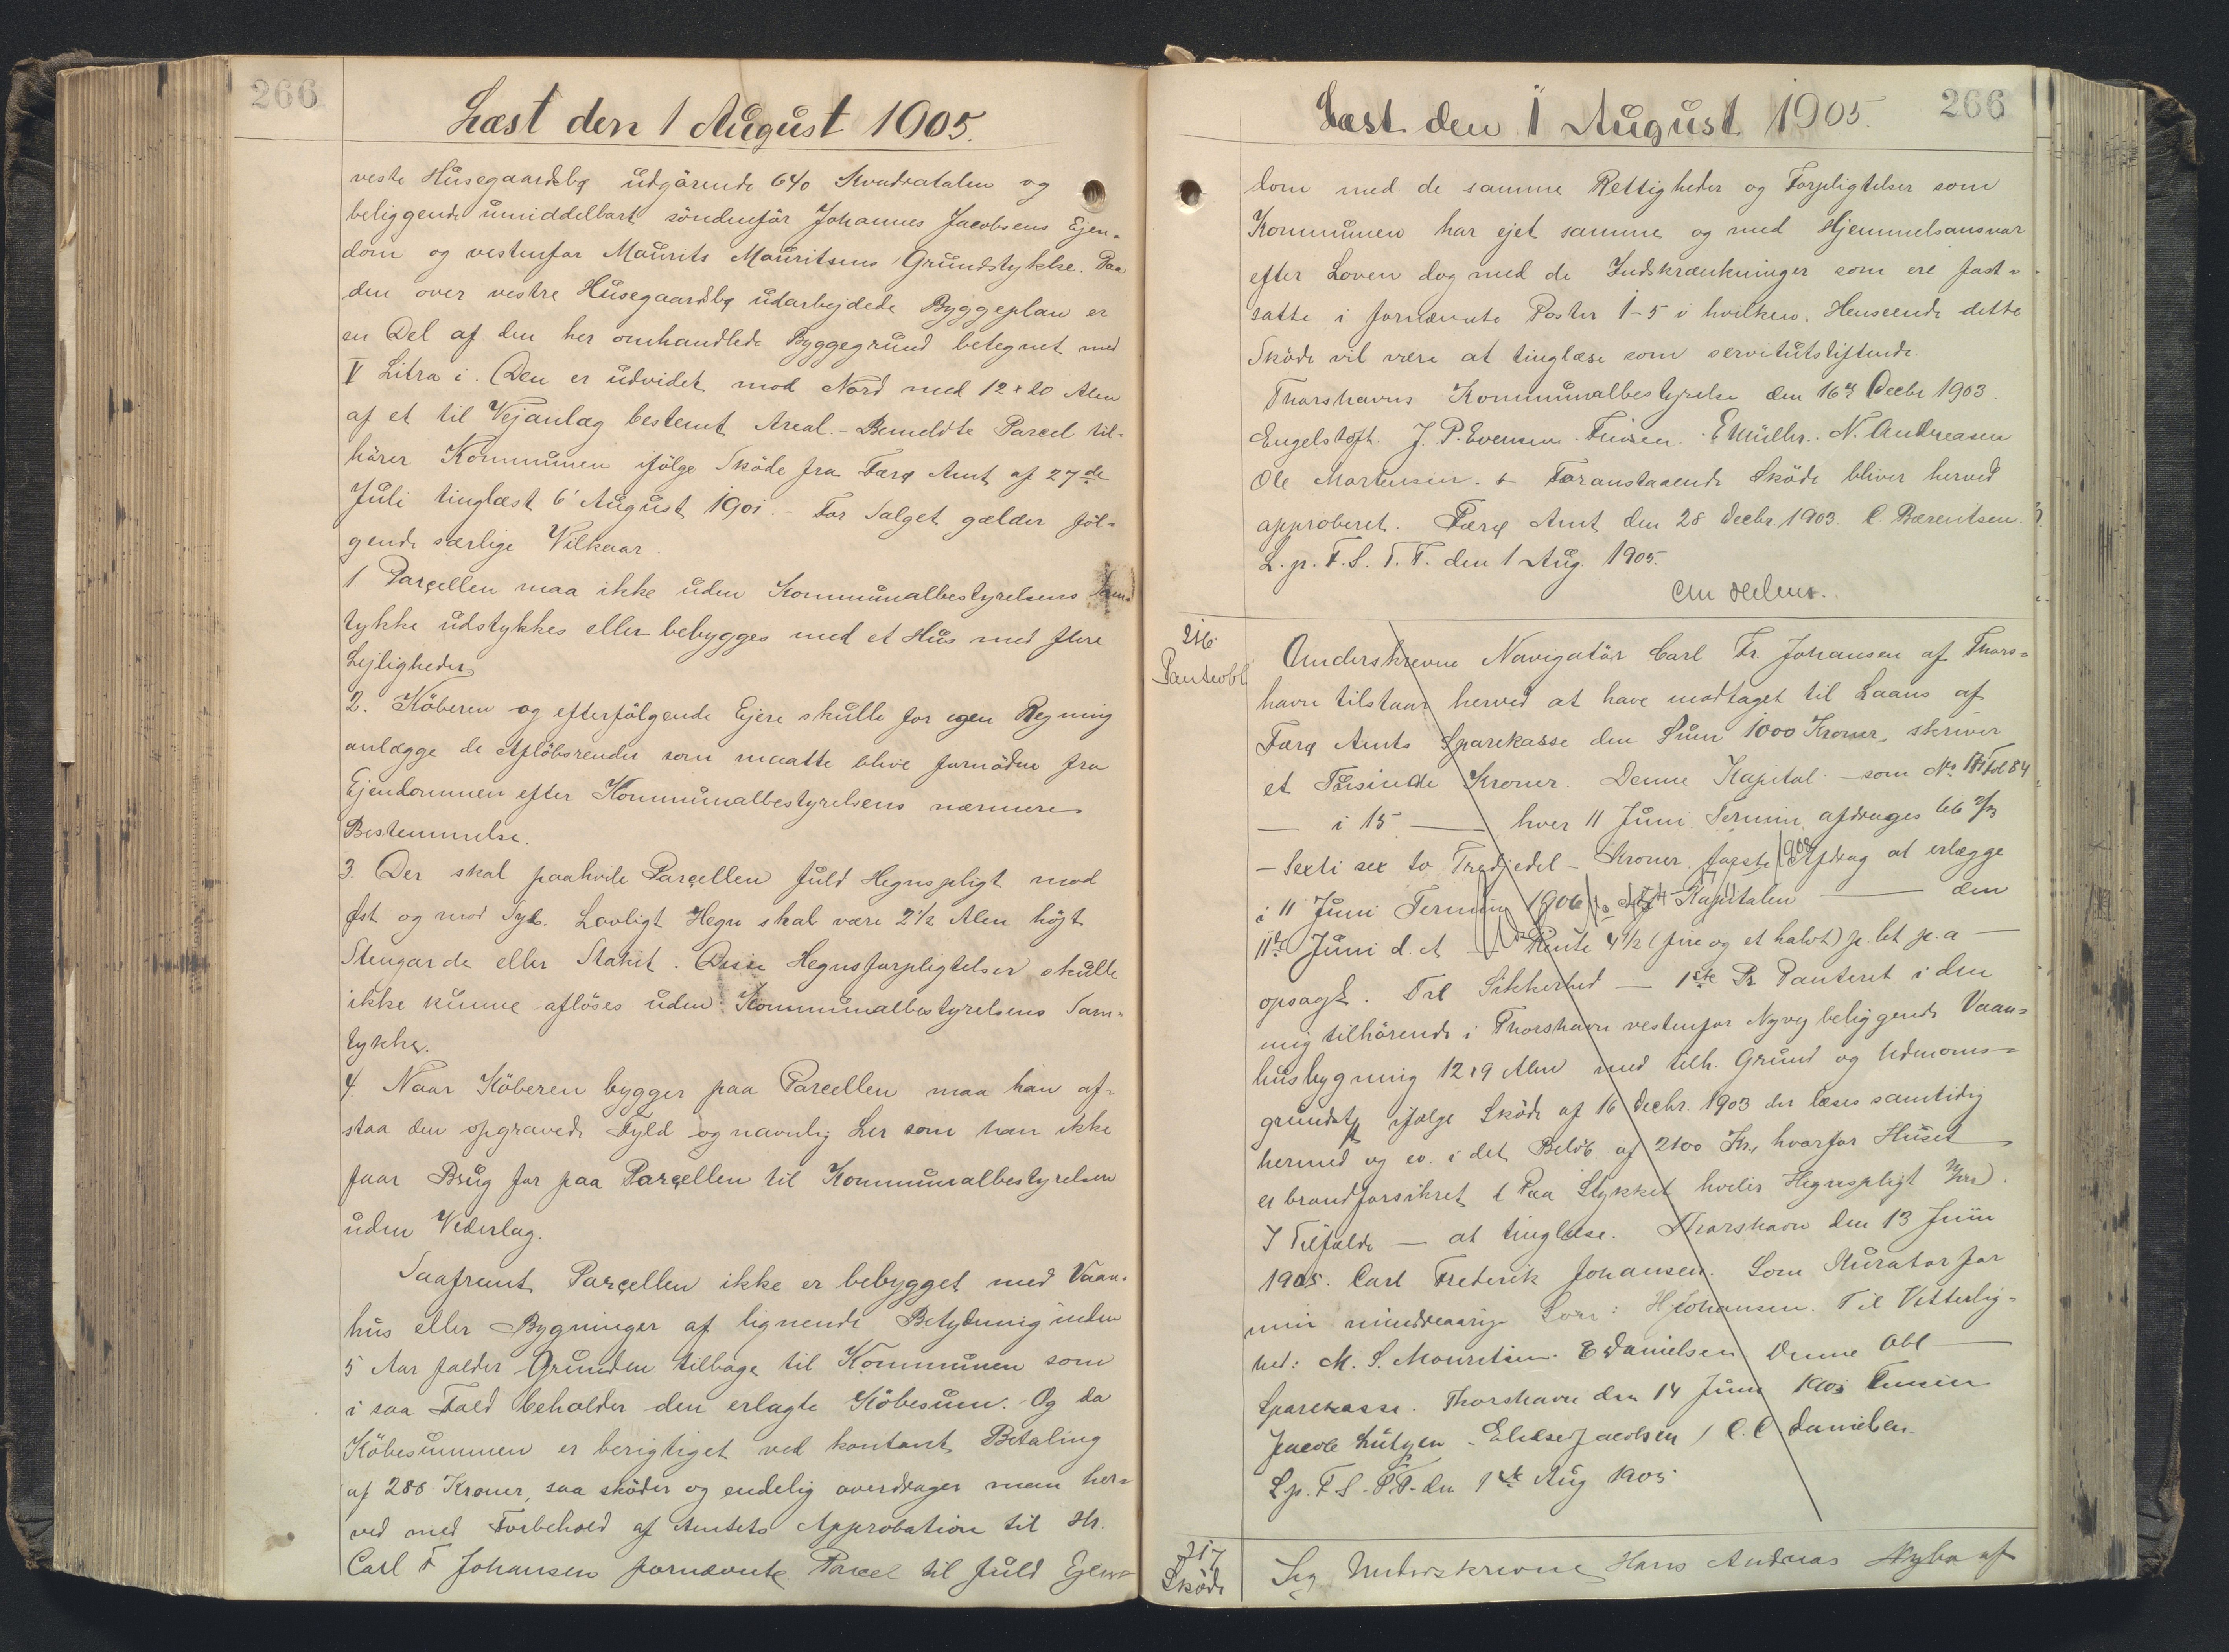 266
Læst den 1 August 1905.
vestre Husegaardsbø udgörende 640 Kvadratalen og
beliggende umiddelbart söndenför Johannes Jacobsens Ejen-
dom og vestenfor Maurits Mauritsens Grundstykke. Paa
den over vestre Husegaardsbø udarbejdede Byggeplan er
en Del af den her omhandlede Byggegrund betegnet med
V Litra i. Den er udvidet mod Nord med 12 x 20 Alen
af et til Vejanlæg bestemt Areal. - Bemeldte Parcel til-
hörer Kommunen ifölge Sköde fra Færø Amt af 27de
Juli tinglæst 6' August 1901. - For Salget gælder föl-
gende særlige Vilkaar.
1. Parçellen maa ikke uden Kommunalbestyrelsens Sam-
tykke udstykkes eller bebygges med et Hus med flere
Lejligheder
2. Köberen og efterfölgende Ejere skulle for egen Regning
anlægge de Aflöbsrender som maatte blive fornödne fra
Ejendommen efter Kommunalbestyrelsens nærmere
Bestemmelse.
3. Der skal paahvile Parçellen fuld Hegnspligt mod
Øst og mod Syd. Lovligt Hegn skal være 2 1/2 Alen højt
Stengærde eller Stakit. Disse Hegnsforpligtelser skulle
ikke kunne aflöses uden Kommunalbestyrelsens Sam-
tykke.
4. Naar Köberen bygger paa Parcellen maa han af-
staa den opgravede Fyld og navnlig Ler som han ikke
faar Brug for paa Parçellen til Kommunalbestyrelsen
uden Vederlag.
Saafremt Parçellen ikke er bebygget med Vaan-
hus eller Bygninger af lignende Betydning inden
5 Aar falder Grunden tilbage til Kommunen som
i saa Fald beholder den erlagte Köbesum. Og da
Köbesummen er berigtiget ved kontant Betaling
af 288 Kroner, saa sköder og endelig overdrager man her-
ved med Forbehold af Amtets Approbation til Hr.
Carl F Johansen fornævnte Parcel til fuld Ejen-
266
Læst den 1 August 1905.
dom med de samme Rettigheder og Forpligtelser som
Kommunen har ejet samme og med Hjemmelsansvar
efter Loven dog med de Indskrænkninger som ere fast-
satte i fornævnte Poster 1-5 i hvilken Henseende dette
Sköde vil være at tinglæse som servitutstiftende.
Thorshavns Kommunalbestyrelse den 16de Decbr 1903.
Engelstoft. J. P. Evensen. Finsen. E Müller. N. Andreasen
Ole Mortensen. + Foranstaaende Sköde bliver herved
approberet. Færø Amt den 28 Decbr. 1903. C. Bærentsen.
L. p. F. S. T. T. den 1 Aug. 1905.
216
Panteobl
Underskrevne Navigatör Carl Fr. Johansen af Thors-
havn tilstaar herved at have modtaget til Laans af
Færø Amts Sparekasse den Sum 1000 Kroner, skriver
et Tusinde Kroner. Denne Kapital - som No Fol 84
- i 15 - hver 11 Juni Termin afdrages 66 2/3
- Sexti sex to Tredjedel - Kroner förste Afdrag at erlægge
i 11 Juni Termin 1906 Kapitalen - den
11te Juni d. A - Rente 4 1/2 (fire og et halvt) p. Ct p. a -
opsagt. Til Sikkerhed - 1ste Pr Panteret i den
mig tilhörende i Thorshavn vestenfor Nyvej beliggende Vaan-
husbygning 12 x 9 Alen med tilh. Grund og Udmoms-
grundst. ifölge Sköde af 16 Decbr. 1903 der læses samtidig
hermed og ev. i det Belöb af 2100 Kr, hvorfor Huset
er brandforsikret (Paa Stykket hviler Hegnspligt .
I Tilfælde - at tinglæse. Thorshavn den 13 Juni
1905. Carl Frederik Johansen. Som Kurator for
min mindreaarige Sön: H Johansen. Til Vitterlig-
hed: M. S. Mouritsen. E Danielsen Denne Obl -
Sparekasse. Thorshavn den 14 Juni 1905 Finsen
Jacob Lützen. Elieser Jacobsen / C. C Danielsen.
L. p. F. S. T. T. den 1ste Aug 1905
217
Sköde
Jeg Underskrevne Hans Andreas Nybo af